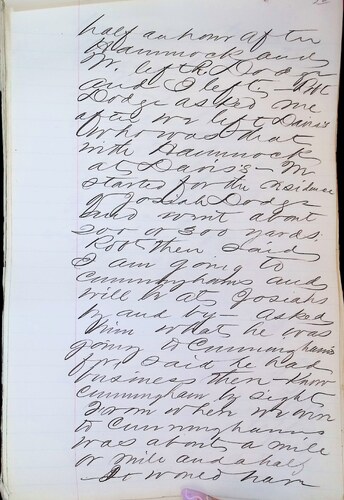 half an hour after
Hammock and
Jr. left R. Dodge
and I left. - Mr
Dodge asked me
after we left Davis's
who was that
with Hammock
at Davis's - We
started for the residence
of Josiah Dodge
and went about
200 or 300 yards.
Robt then said
I am going to
Cunninghams and
will be at Josiahs
by and by - asked
him what he was
going to Cunninghams
for, said he had
business then - Know
Cunningham by sight
From when we were
to Cunninghams
was about a mile
or mile and a half
It would have